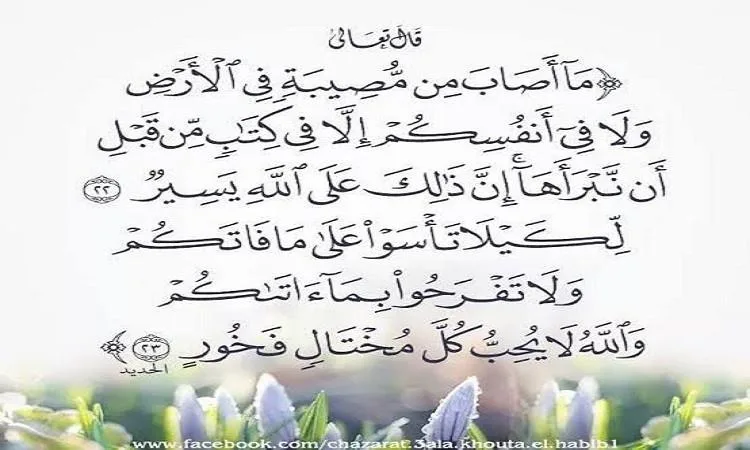 قال تعالى
﴿مَآ أَصَابَ مِن مُّصِيبَةٍ فِي ٱلْأَرْضِ
وَلَا فِيٓ أَنفُسِكُمْ إِلَّا فِي كِتَٰبٍ مِّن قَبْلِ
أَن نَّبْرَأَهَآ ۚ إِنَّ ذَٰلِكَ عَلَى ٱللَّهِ يَسِيرٌ ٢٢
لِّكَيْلَا تَأْسَوْا۟ عَلَىٰ مَا فَاتَكُمْ
وَلَا تَفْرَحُوا۟ بِمَآ ءَاتَىٰكُمْ
وَٱللَّهُ لَا يُحِبُّ كُلَّ مُخْتَالٍ فَخُورٍ ٢٣﴾
الحديد
www.facebook.com/chazarat.3ala.khouta.el.habib1